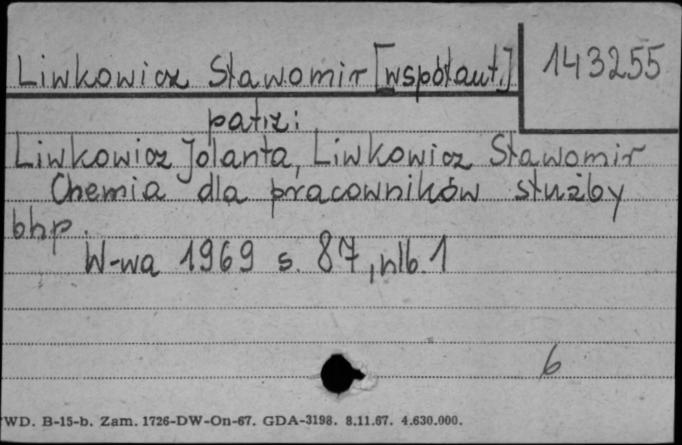 Liwkowicz Sławomir [współaut.] 143255
patrz:
Liwkowicz Jolanta, Liwkowicz Sławomir
Chemia dla pracowników służby
bhp.
W-wa 1969 s. 87, nlb. 1
6
WD. B-15-b. Zam. 1726-DW-On-67. GDA-3198. 8.11.67. 4.630.000.